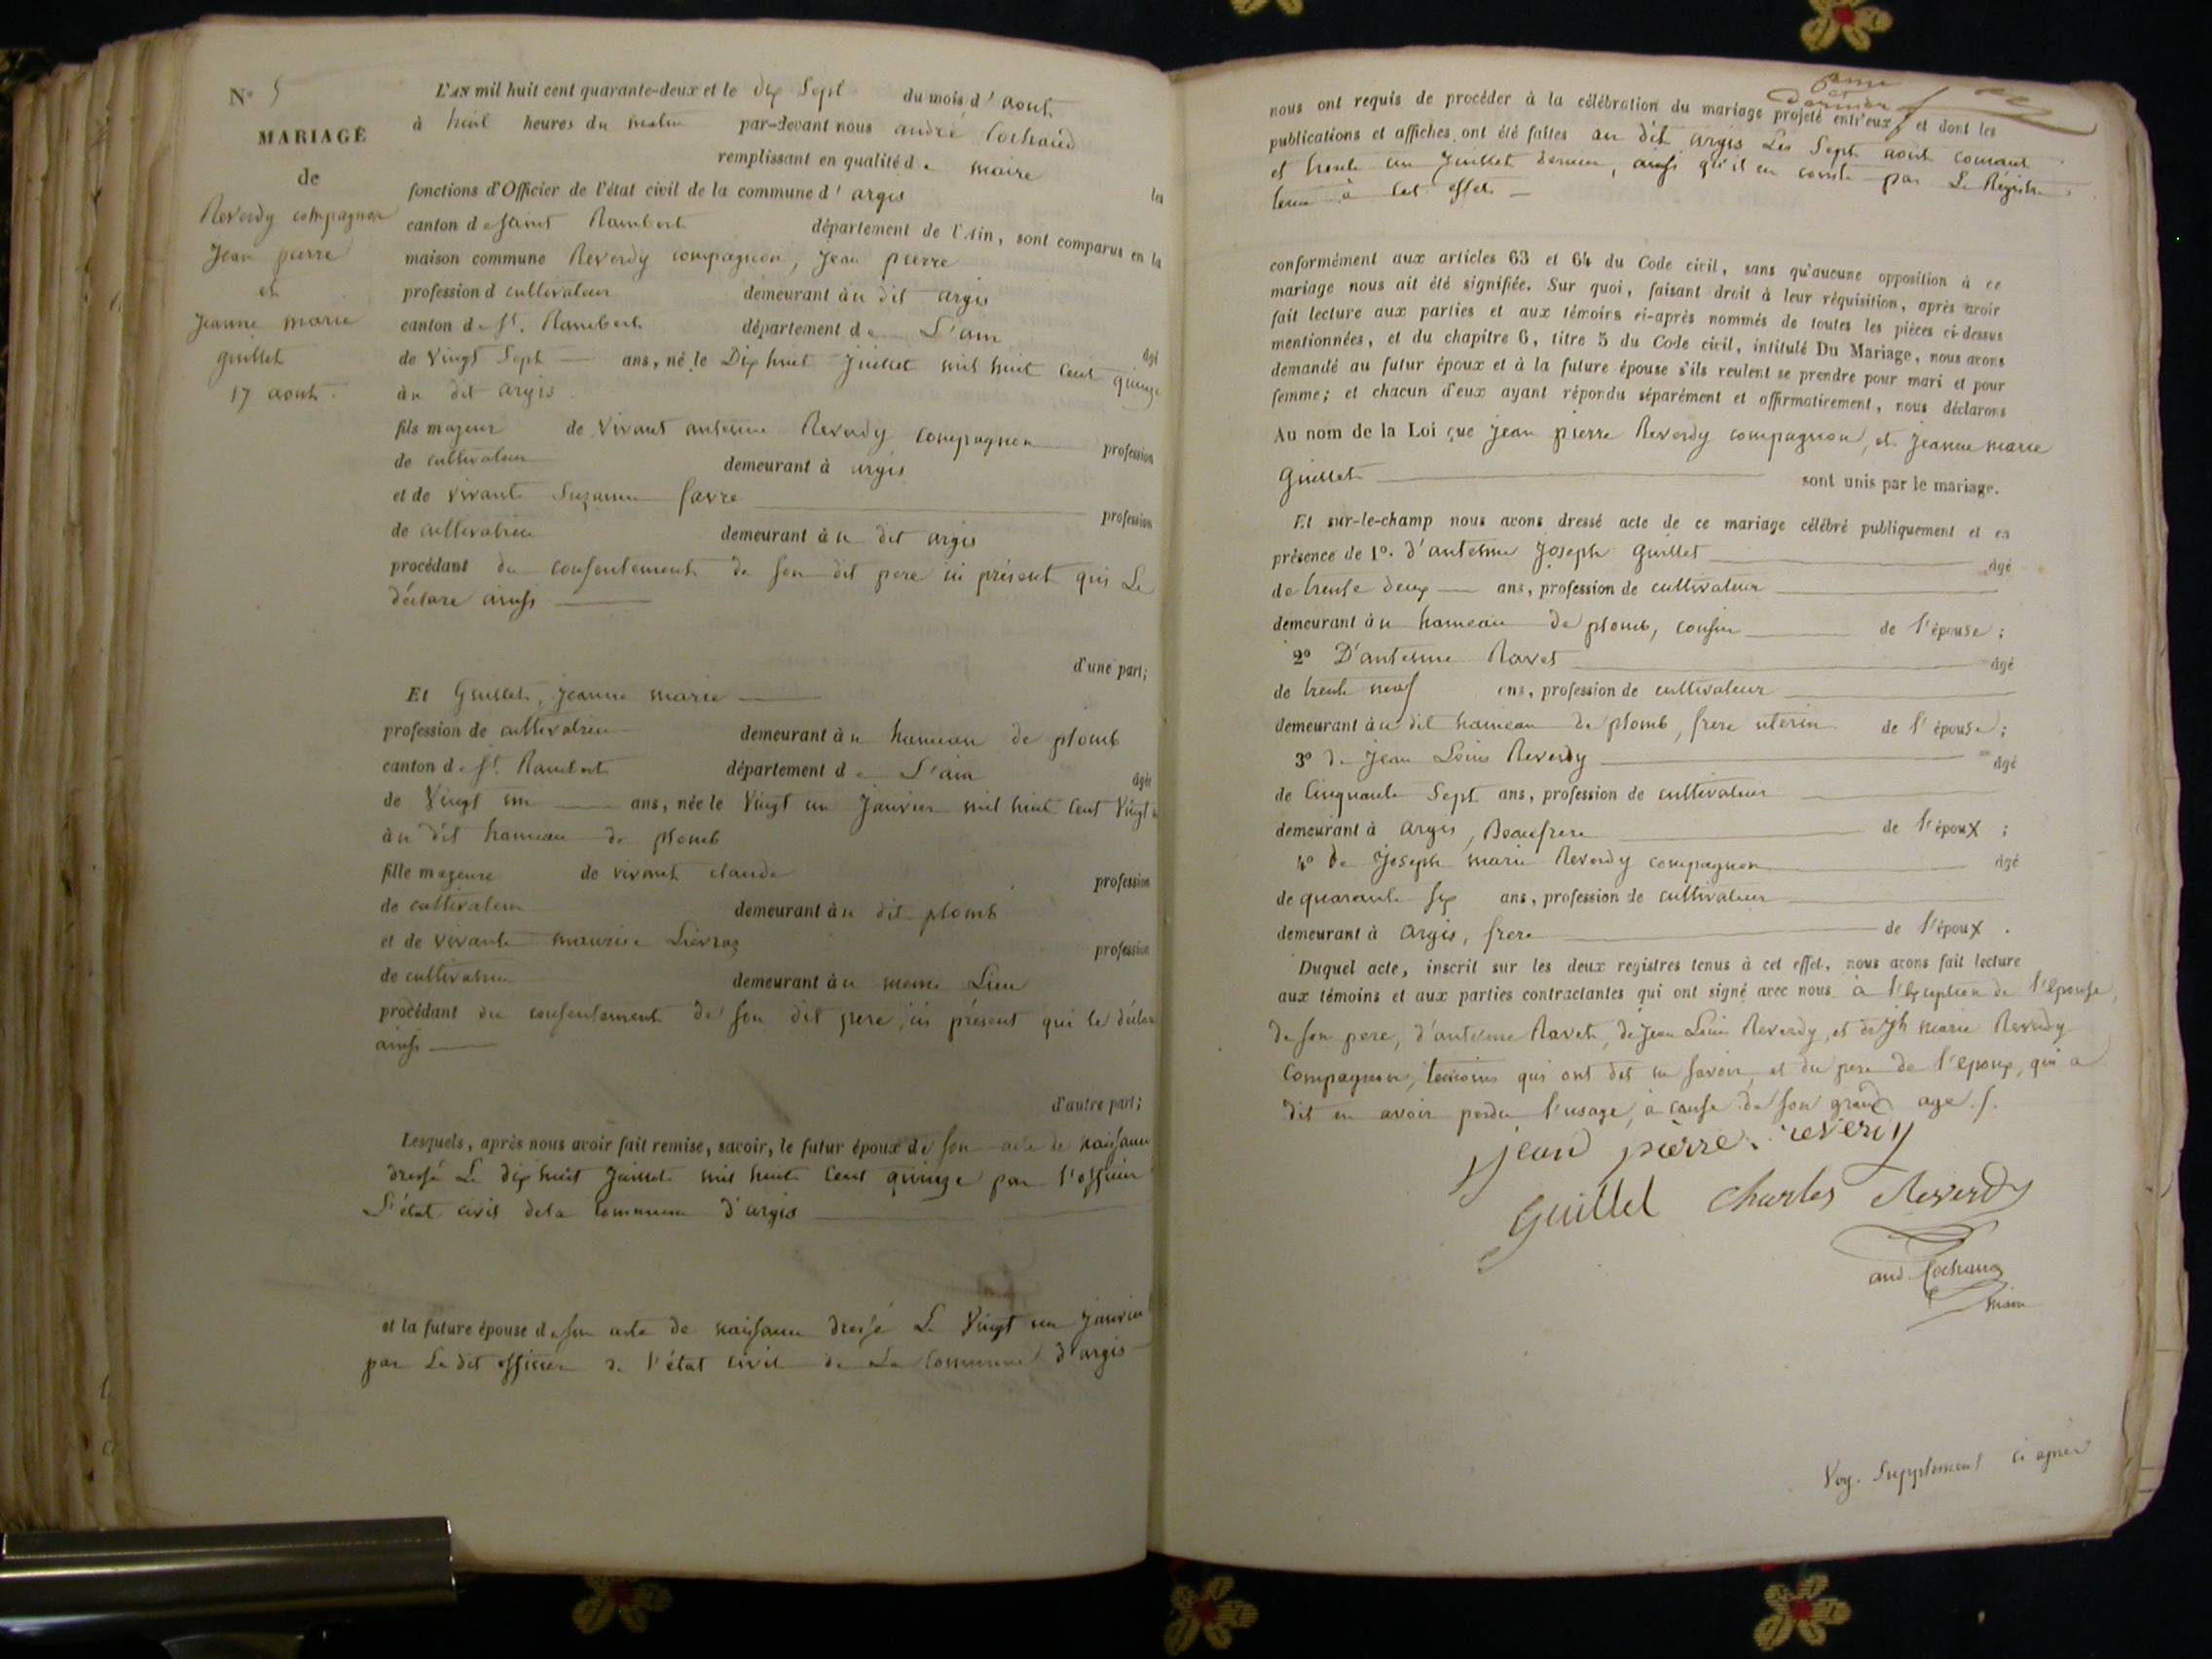 N° 5
MARIAGE
de
Reverdy compagnon
Jean pierre
et
Jeanne marie
guillet
17 aout.
L'AN mil huit cent quarante-deux et le dix Sept du mois d'aout
à huit heures du matin par-devant nous andré Cochaud
remplissant en qualité de maire les
fonctions d'Officier de l'état civil de la commune d'argis
canton de saint Rambert département de l'Ain, sont comparus en la
maison commune Reverdy compagnon, Jean pierre
profession d cultivateur demeurant àu dit argis
canton de St. Rambert département de L'ain âgé
de Vingt Sept ans, né le Dix huit Juillet mil huit Cent quinze
àu dit argis
fils majeur de Vivant antelme Reverdy compagnon profession
de cultivateur demeurant à argis
et de vivante Suzanne favre profession
de cultivatrice demeurant àu dit argis
procédant du consentement de son dit pere ici présent qui Le
déclare ainsi
d'une part;
Et Guillet, Jeanne marie
profession de cultivatrice demeurant àu hameau de plomb
canton de St. Rambert département de L'ain âgée
de Vingt un ans, née le Vingt un Janvier mil huit Cent Vingt un
àu dit hameau de plomb
fille majeure de vivant claude profession
de cultivateur demeurant àu dit plomb
et de vivante maurice Lievraz profession
de cultivatrice demeurant àu meme Lieu
procédant du consentement de son dit pere, ici présent qui le déclare
ainsi
d'autre part;
Lesquels, après nous avoir fait remise, savoir, le futur époux de son acte de naissance
dressé Le dix huit Juillet mil huit Cent quinze par l'officier
L'état civil dela Commune d'argis
et la future épouse de son acte de naissance dressé Le Vingt un Janvier
par Le dit officier de l'état civil de La Commune d'argis
6eme
et
dernier
nous ont requis de procéder à la célébration du mariage projeté entr'eux, et dont les
publications et affiches ont été faites au dit argis Les Sept aout courant
et trente un Juillet dernier, ainsi qu'il en conste par Le Régistre
tenu à cet effet
conformément aux articles 63 et 64 du Code civil, sans qu'aucune opposition à ce
mariage nous ait été signifiée. Sur quoi, faisant droit à leur réquisition, après avoir
fait lecture aux parties et aux témoins ci-après nommés de toutes les pièces ci-dessus
mentionnées, et du chapitre 6, titre 5 du Code civil, intitulé Du Mariage, nous avons
demandé au futur époux et à la future épouse s'ils veulent se prendre pour mari et pour
femme; et chacun d'eux ayant répondu séparément et affirmativement, nous déclarons
Au nom de la Loi que Jean pierre Reverdy compagnon, et Jeanne marie
Guillet sont unis par le mariage.
Et sur-le-champ nous avons dressé acte de ce mariage célébré publiquement et en
présence de 1°. d'antelme Joseph Guillet âgé
de trente deux ans, profession de cultivateur
demeurant àu hameau de plomb, cousin de l'épouse;
2° D'antelme Ravet âgé
de trente neuf ans, profession de cultivateur
demeurant àu dit hameau de plomb, frere uterin de l'épouse;
3° de Jean Louis Reverdy âgé
de Cinquante Sept ans, profession de cultivateur
demeurant à argis, Beaufrere de l'époux;
4° De Joseph marie Reverdy compagnon âgé
de quarante six ans, profession de cultivateur
demeurant à argis, frere de l'époux.
Duquel acte, inscrit sur les deux registres tenus à cet effet, nous avons fait lecture
aux témoins et aux parties contractantes qui ont signé avec nous à l'Exception de l'epouse,
de son pere, d'antelme Ravet, de Jean Louis Reverdy, et de Jh marie Reverdy
Compagnon, temoins qui ont dit ne savoir, et du pere de l'epoux, qui a
dit en avoir perdu l'usage, à cause de son grand age./.
jean pierre reverdy
Guillet Charles Reverdy
and. Cochaud
maire
Voy. Supplement ci après